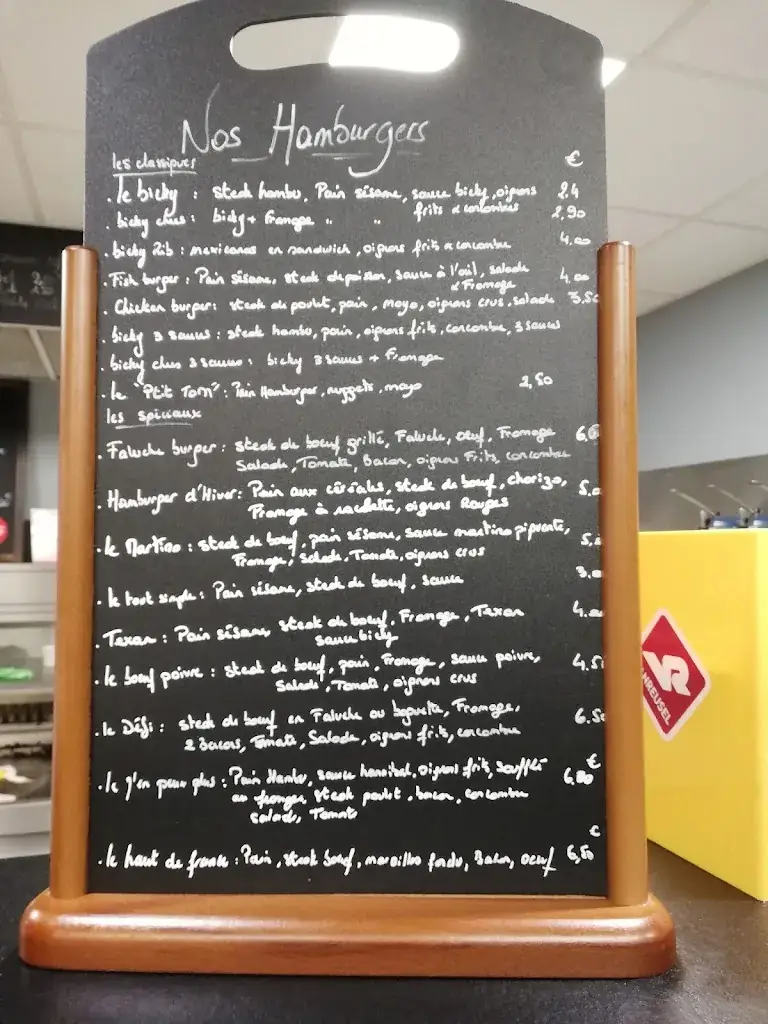 Nos Hamburgers
les classiques €
. le bicky : steak hambu, Pain sésame, sauce bicky, oignons 2.4
. bicky chees : bicky + Fromage " " frits & concombres 2,90
. bicky Rib : mexicanos en sandwich, oignons frits & concombre 4.00
. Fish burger : Pain sésame, steak de poisson, sauce à l'ail, salade 4.00
& Fromage
. Chicken burger : steak de poulet, pain, mayo, oignons crus, salade 3.50
. bicky 3 sauces : steak hambu, pain, oignons frits, concombre, 3 sauces
. bicky chees 3 sauces : bicky 3 sauces + Fromage
. le "Ptit Tom" : Pain Hamburger, nuggets, mayo 2,50
les spéciaux
. Faluche burger : steak de boeuf grillé, Faluche, oeuf, Fromage 6,
Salade, Tomate, Bacon, oignons Frits, concombre
. Hamburger d'Hiver : Pain aux céréales, steak de boeuf, chorizo, 5.0
Fromage à raclette, oignons Rouges
. le Martino : steak de boeuf, pain sésame, sauce martino piquante, 5.
Fromage, Salade, Tomate, oignons crus
. le tout simple : Pain sésame, steak de boeuf, sauce 3.0
. Texan : Pain sésame, steak de boeuf, Fromage, Texan 4.00
sauce bicky
. le boeuf poivre : steak de boeuf, pain, Fromage, sauce poivre, 4.5
Salade, Tomate, oignons crus
. le Défi : steak de boeuf en Faluche ou baguette, Fromage, 6.50
2 bacons, Tomate, Salade, oignons frits, concombre
€
. le j'en peux plus : Pain Hambu, sauce hannibal, oignons frits, Soufflé 6,80
au fromage, steak poulet, bacon, concombre
salade, Tomate
€
. le haut de france : Pain, steak boeuf, maroilles fondu, Bacon, oeuf 6,50
VR